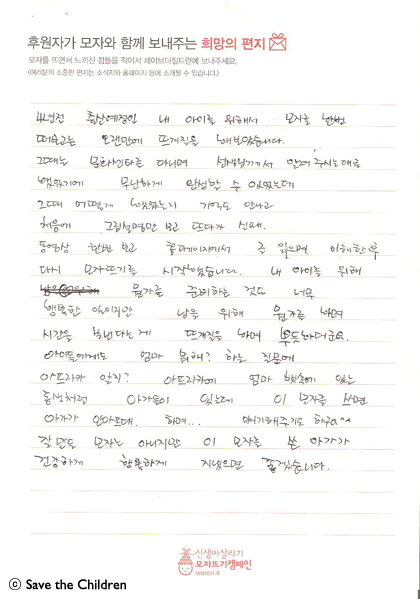 후원자가 모자와 함께 보내주는 희망의 편지
모자를 뜨면서 느끼신 점들을 적어서 세이브더칠드런에 보내주세요.
(여러분의 소중한 편지는 소식지와 홈페이지 등에 소개될 수 있습니다.)
4년전 출산예정인 내 아이를 위해서 모자를 한번
떠보고는 오랜만에 뜨개질을 해보았습니다.
그때는 문화센타를 다니며 선생님께서 알려 주시는대로
했었기에 무난하게 완성할 수 있었는데
그때 어떻게 했었는지 기억도 안나고
처음에 그림설명만 보고 뜨다가 실패.
동영상 한번 보고 홈페이지에서 죽 읽으며 이해한 후
다시 모자뜨기를 시작했습니다. 내 아이를 위해
뭔가를 준비하는 것도 너무
행복한 일이지만 남을 위해 뭔가를 하며
시간을 보낸다는게 뜨개질을 하며 뿌듯하더군요.
아이들에게도 엄마 뭐해? 하는 질문에
아프리카 알지? 아프리카에 엄마 뱃속에 있는
동생처럼 아가들이 있는데 이 모자를 쓰면
아가가 안아프대. 하며... 얘기해주기도 하구^^
잘 만든 모자는 아니지만 이 모자를 쓴 아가가
건강하게 행복하게 지냈으면 좋겠습니다.
신생아살리기
모자뜨기캠페인
season 4
ⓒ Save the Children